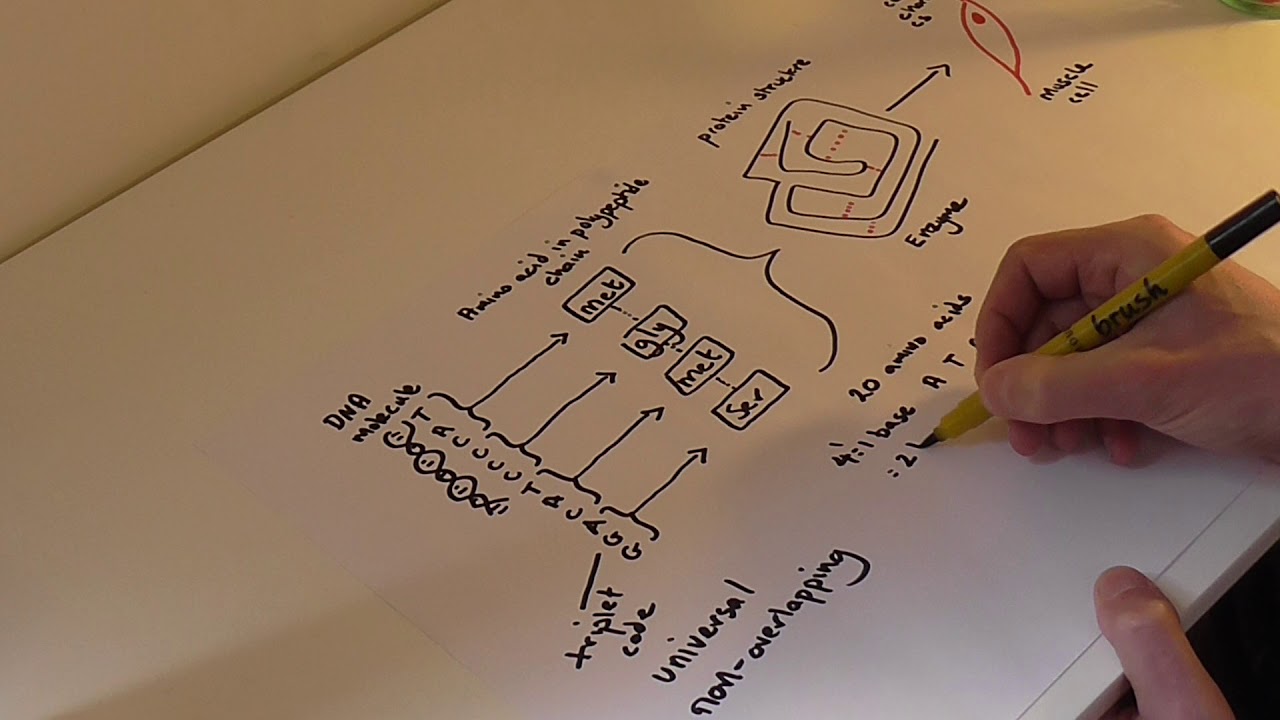 muscle
cell
protein structure
Enzyme
Amino acid in polypeptide
chain
met
gly
met
ser
DNA
molecule
T A C C C C T A C A G G
20 amino acids
4¹=1 base A T
= 2
triplet
code
universal
non-overlapping
brush